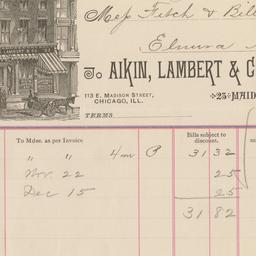 Mess Fitch & Bill
Elmira
To AIKIN, LAMBERT & C
113 E. MADISON STREET,
CHICAGO, ILL.
23 MAID
TERMS
To Mdse. as per Invoice
Bills subject to
discount.
" " 4m 3132
Nov. 22 25
Dec 15 25
31 82